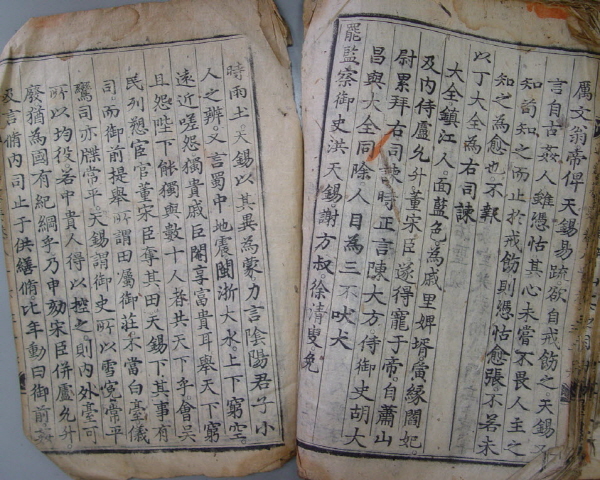 厲文翁帝俾天錫易疏欲自戒飭之天錫又
言自古姦人雖憑怙其心未嘗不畏人主之
知苟知之而止於戒飭則憑怙愈張不若未
知之為愈也不報
以丁大全為右司諫
大全鎮江人面藍色為戚里婢壻緣閻妃
及內侍盧允升董宋臣遂得寵于帝自蕭山
尉累拜右司諫時正言陳大方侍御史胡大
昌與大全同除人目為三不吠犬
罷監察御史洪天錫謝方叔徐清叟免
時雨土天錫以其異為蒙力言陰陽君子小
人之辨又言蜀中地震閩浙大水上下窮空
遠近嗟怨獨貴戚巨閹享富貴耳舉天下窮
且怨陛下能獨與數十人者共天下乎會吳
民列愬宦官董宋臣奪其田天錫下其事有
司而御前提舉所謂田屬御莊不當白臺儀
鸞司亦牒常平天錫謂御史所以雪冤常平
所以均役若中貴人得以控之則內外臺可
廢猶為國有紀綱乎乃申劾宋臣併盧允升
及言脩內司止于供繕脩比年動曰御前